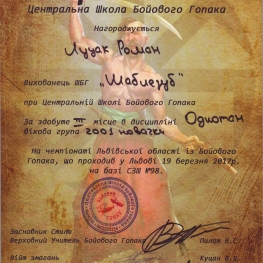 Центральна Школа Бойового Гопака
Нагороджується
Луцак Роман
Вихованець ШБГ "Шаблезуб"
при Центральній Школі Бойового Гопака
За здобуте III місце в дисципліні Однотан
вікова група 2001 новачки
На чемпіонаті Львівської області із Бойового
Гопака, що проходив у Львові 19 березня 2017р.
на базі СЗШ №98.
Засновник Стилю
Верховний Учитель Бойового Гопака
Пилат В.С.
Війт змагань
Куцян В.Ц.